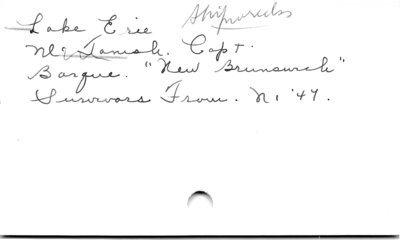 Lake Erie Shipwrecks
Mc Tavish. Capt.
Barque. "New Brunswick"
Survivors From. N, '47.